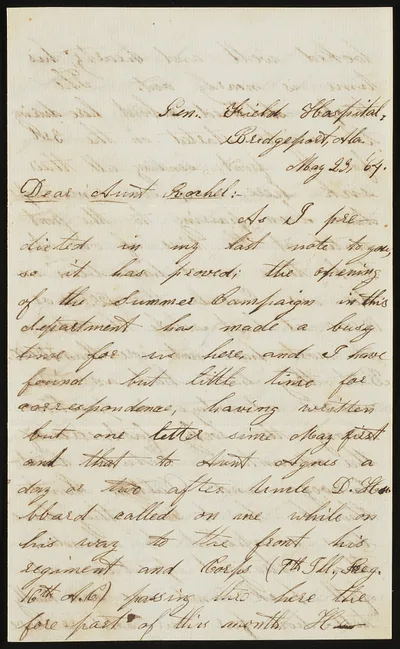 Gen. Field Hospital,
Bridgeport, Ala.
May 23, '64.
Dear Aunt Rachel:-
As I pre
dicted in my last note to you,
so it has proved; the opening
of the Summer Campaign in this
department has made a busy
time for us here, and I have
found but little time for
correspondence, having written
but one letter since May first
and that to Aunt Agnes a
day or two after Uncle D. Hu
bbard called on me while on
his way to the front his
regiment and Corps (7th Ill. Reg.
16th A.C.) passing thro here the
fore part of this month. He